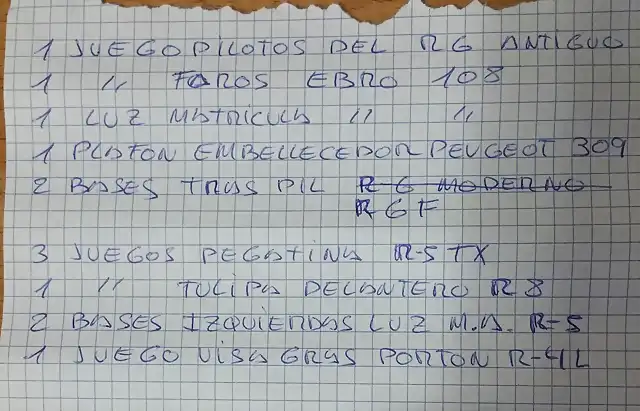 1 JUEGO PILOTOS DEL R6 ANTIGUO
1 " FAROS EBRO 108
1 LUZ MATRICULA " "
1 PLATON EMBELLECEDOR PEUGEOT 309
2 BASES TRAS PIL R 6 MODERNO
R 6 F
3 JUEGOS PEGATINA R-5 TX
1 " TULIPA DELANTERO R 8
2 BASES IZQUIERDAS LUZ M.A. R-5
1 JUEGO VISAGRAS PORTON R-4L